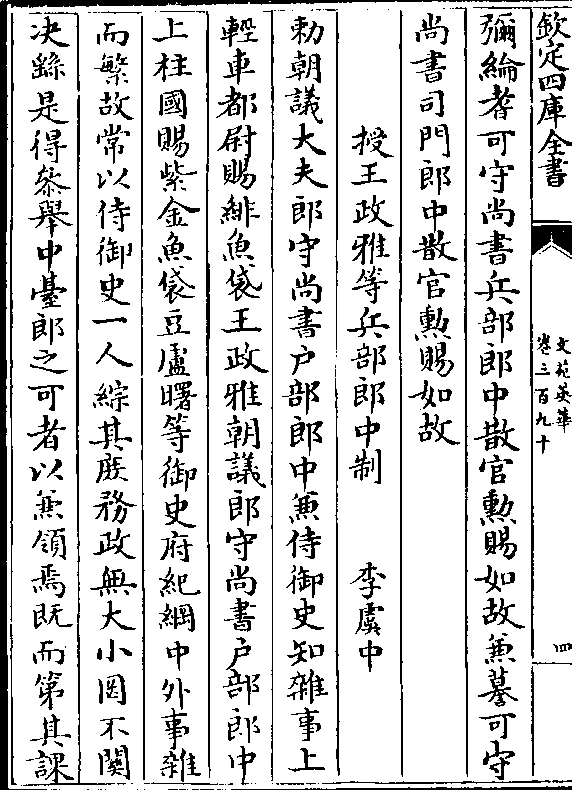 欽定四庫全書
文苑英華
卷三百九十
四
彌綸耆可守尚書兵部郎中散官勲賜如故兼謩可守
尚書司門郎中散官勲賜如故
授王政雅等兵部郎中制 李虞中
勅朝議大夫郎守尚書户部郎中兼侍御史知雜事上
輕車都尉賜緋魚袋王政雅朝議郎守尚書户部郎中
上柱國賜紫金魚袋豆盧曙等御史府紀綱中外事雜
而繁故常以侍御史一人綜其厥務政無大小罔不關
决繇是得叅舉中臺郎之可者以兼領焉既而第其課